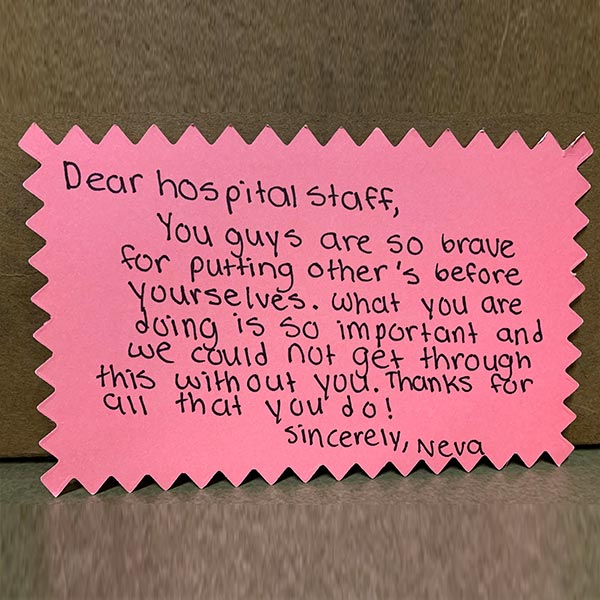 Dear hospital staff,
You guys are so brave
for putting other's before
yourselves. What you are
doing is so important and
we could not get through
this without you. Thanks for
all that you do!
Sincerely, Neva